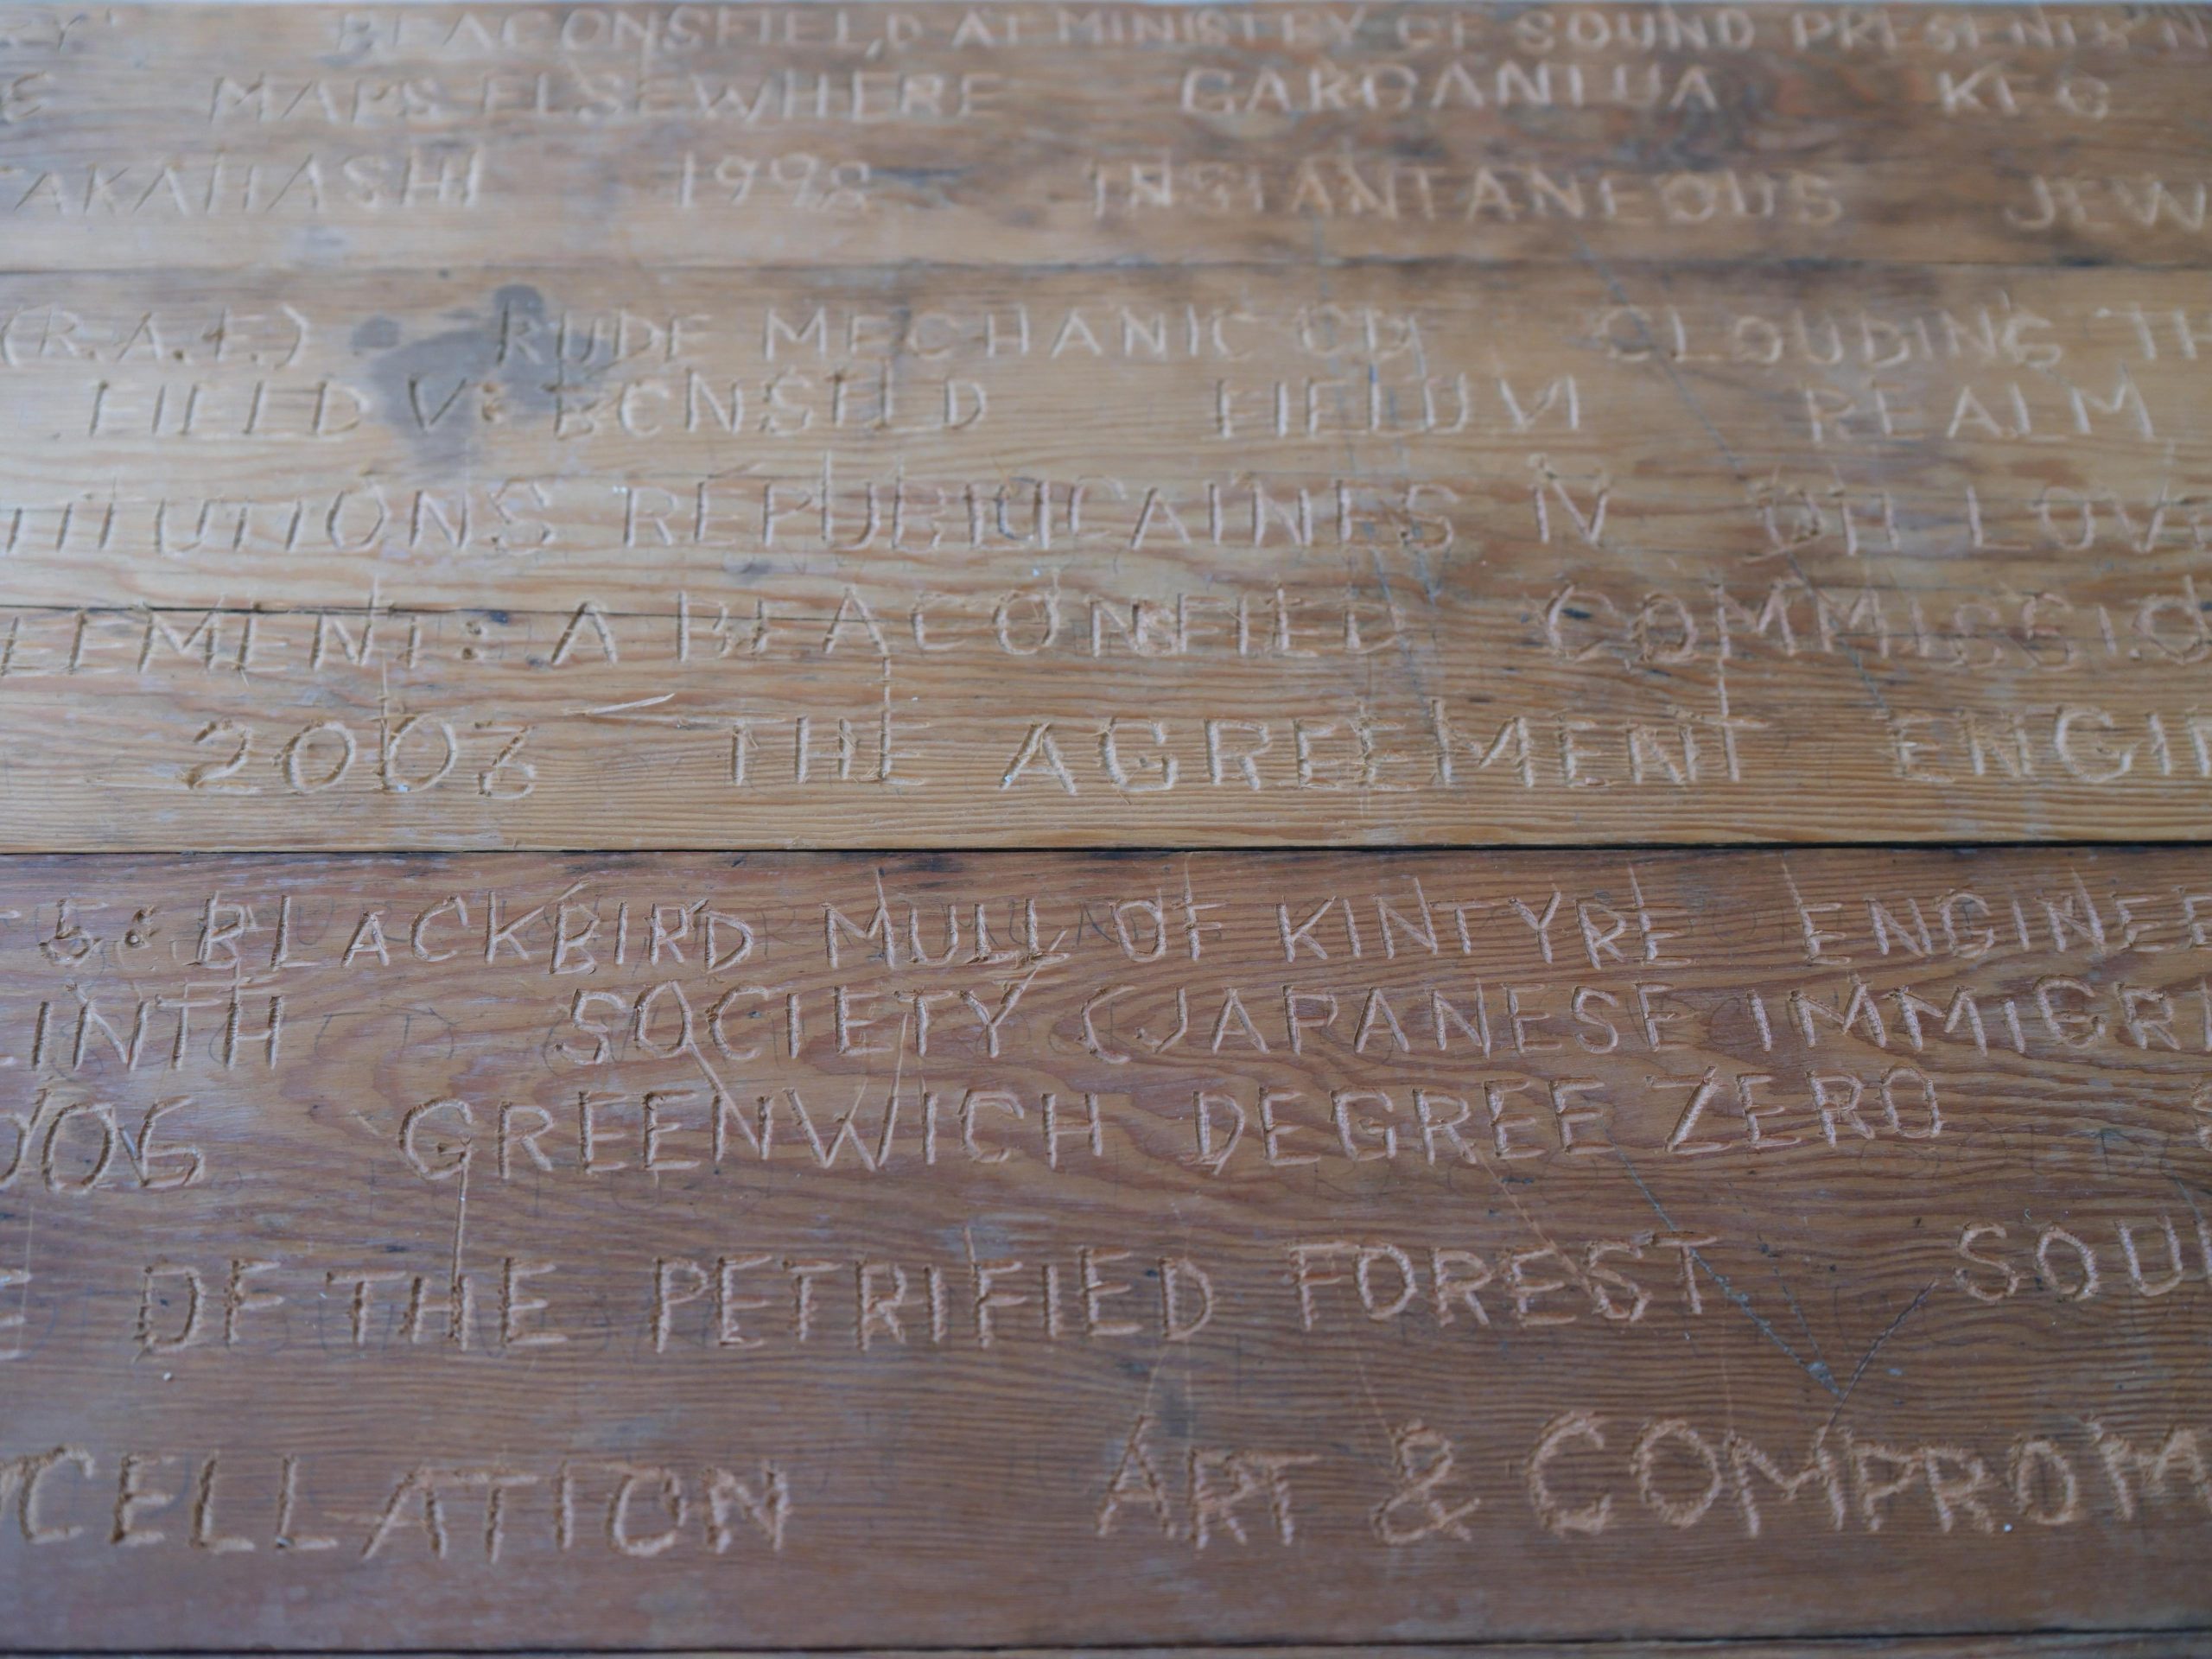 RY' BEACONSFIELD AT MINISTRY OF SOUND PRESENTS
E MAPS ELSEWHERE GARGANTUA
AKAHASHI 1998 INSTANTANEOUS JEW
(R.A.F.) RUDE MECHANIC CD CLOUDING TH
FIELD V: BCNSFLD FIELD VI REALM
TITUTIONS RÉPUBLICAINES IV OH LOVE
LEMENT: A BEACONFIELD COMMISSIO
2003 THE AGREEMENT ENGIN
5: BLACKBIRD MULL OF KINTYRE ENGINEE
LINTH SOCIETY (JAPANESE IMMIGR
006 GREENWICH DEGREE ZERO
E OF THE PETRIFIED FOREST SOU
CELLATION ART & COMPROM